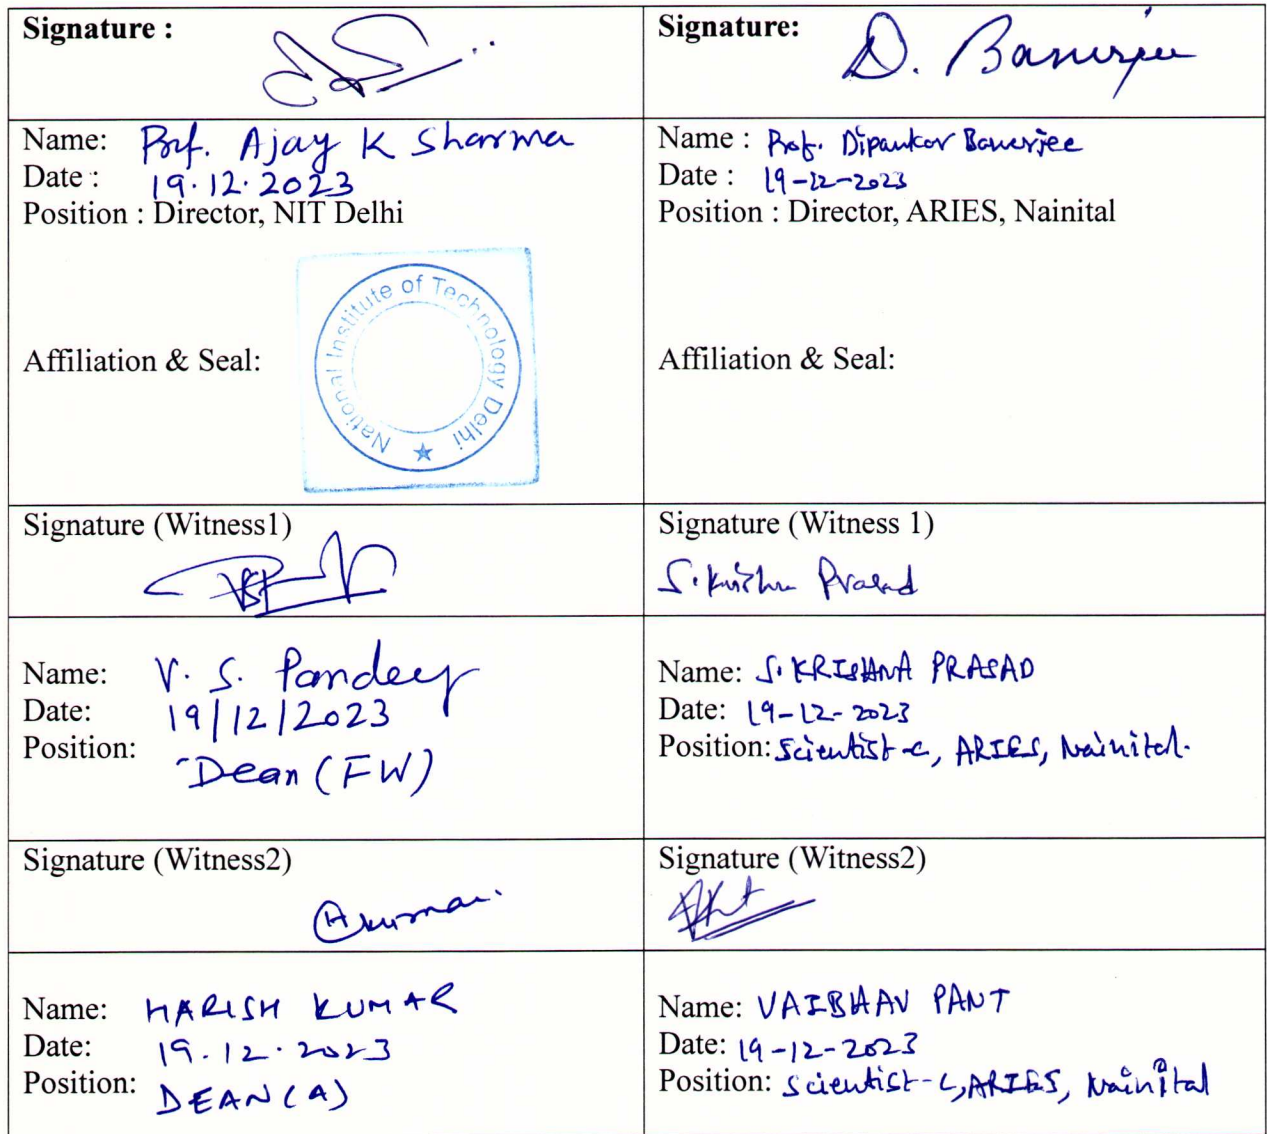 Signature :
Signature:
D. Banerjee
Name: Prof. Ajay K Sharma
Date : 19.12.2023
Position : Director, NIT Delhi
Name : Prof. Dipankar Banerjee
Date : 19-12-2023
Position : Director, ARIES, Nainital
Affiliation & Seal:
National Institute of Technology Delhi
Affiliation & Seal:
Signature (Witness1)
Signature (Witness 1)
S. Krishna Prasad
Name: V. S. Pandey
Date: 19/12/2023
Position: Dean (FW)
Name: S. KRISHNA PRASAD
Date: 19-12-2023
Position: Scientist-C, ARIES, Nainital.
Signature (Witness2)
Signature (Witness2)
Name: HARISH KUMAR
Date: 19.12.2023
Position: DEAN (A)
Name: VAIBHAV PANT
Date: 19-12-2023
Position: Scientist-C, ARIES, Nainital